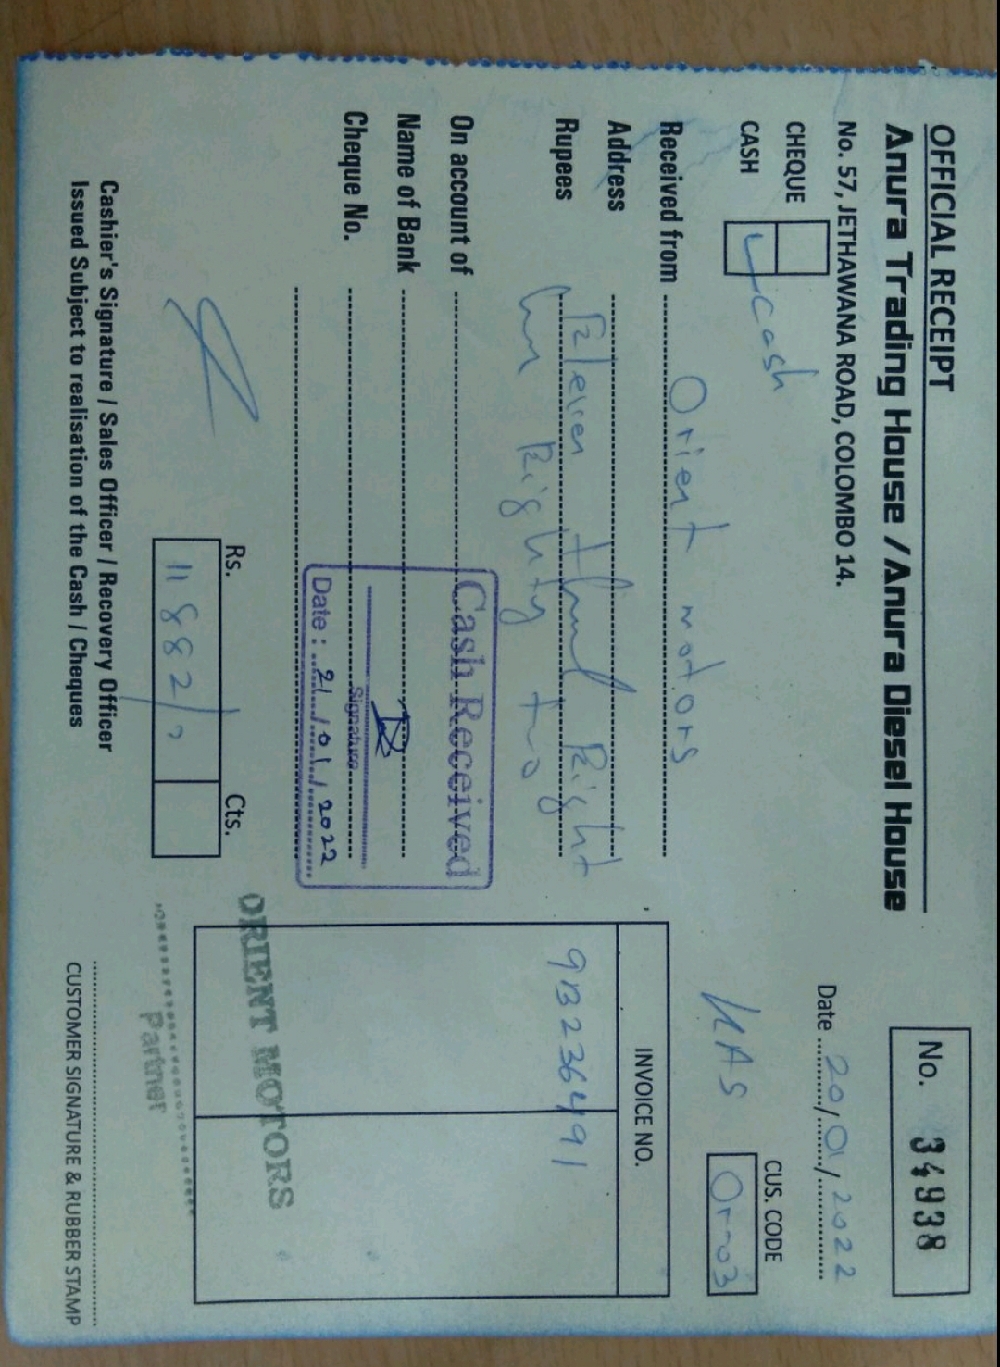 OFFICIAL RECEIPT
Anura Trading House / Anura Diesel House
No. 57, JETHAWANA ROAD, COLOMBO 14.
No. 34938
Date 20/01/2022
CHEQUE
CASH cash
CUS. CODE
Or-03
Received from Orient motors
INVOICE NO.
Address
Rupees Eleven Eight
Eighty two
On account of
Name of Bank
Cheque No.
Cash Received
Signature
Date : 21/01/2022
Rs. Cts.
11882/
ORIENT MOTORS
Partner
Cashier's Signature / Sales Officer / Recovery Officer
Issued Subject to realisation of the Cash / Cheques
CUSTOMER SIGNATURE & RUBBER STAMP